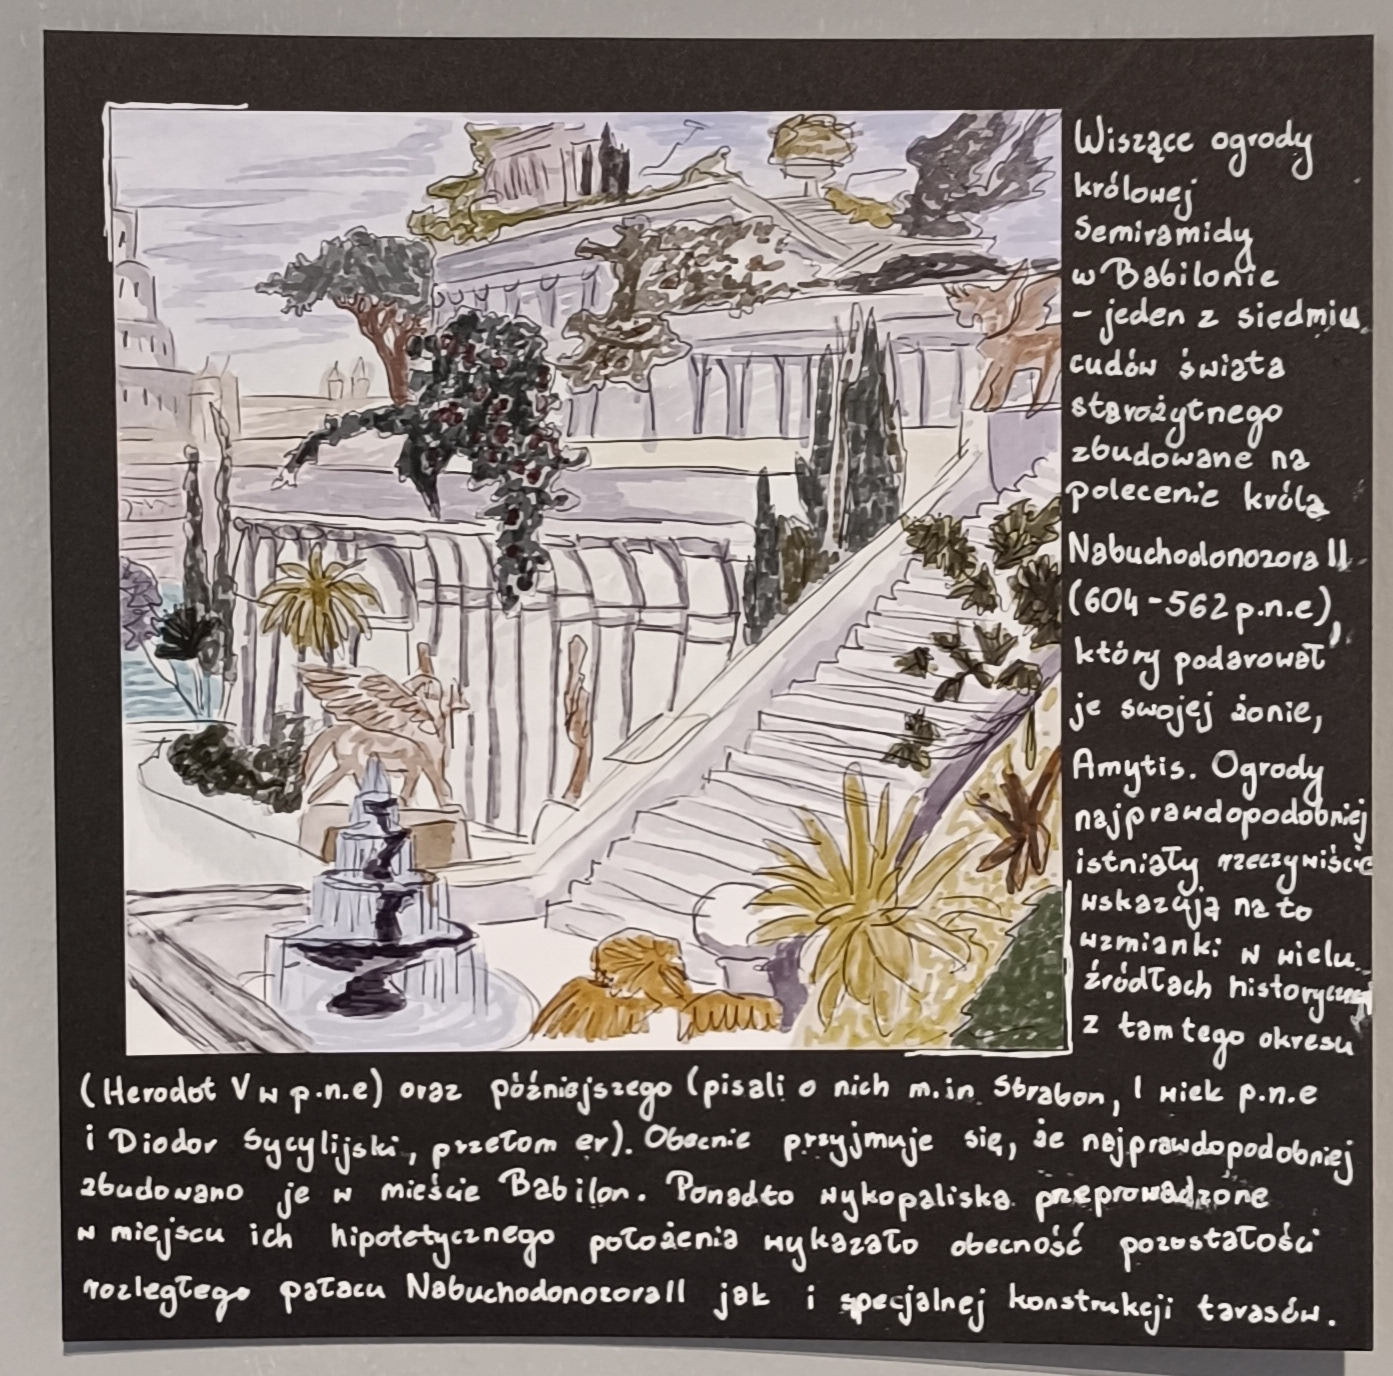 Wiszące ogrody
królowej
Semiramidy
w Babilonie
- jeden z siedmiu
cudów świata
starożytnego
zbudowane na
polecenie króla
Nabuchodonozora II
(604-562 p.n.e),
który podarował
je swojej żonie,
Amytis. Ogrody
najprawdopodobniej
istniały rzeczywiście
wskazują na to
wzmianki w wielu
źródłach historycznych
z tamtego okresu
(Herodot V w p.n.e) oraz późniejszego (pisali o nich m.in Strabon, I wiek p.n.e
i Diodor Sycylijski, przełom er). Obecnie przyjmuje się, że najprawdopodobniej
zbudowano je w mieście Babilon. Ponadto wykopaliska przeprowadzone
w miejscu ich hipotetycznego położenia wykazało obecność pozostałości
rozległego pałacu Nabuchodonozora II jak i specjalnej konstrukcji tarasów.